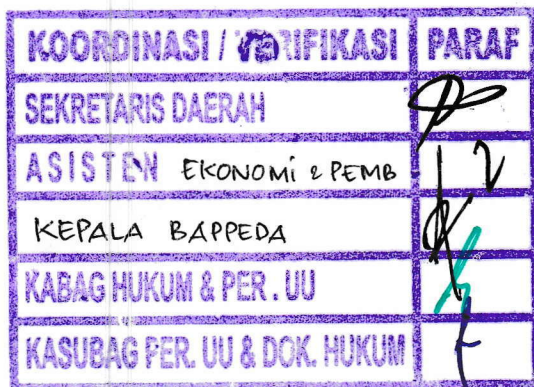 KOORDINASI / VERIFIKASI PARAF
SEKRETARIS DAERAH
ASISTEN EKONOMI & PEMB
KEPALA BAPPEDA
KABAG HUKUM & PER. UU
KASUBAG PER. UU & DOK. HUKUM